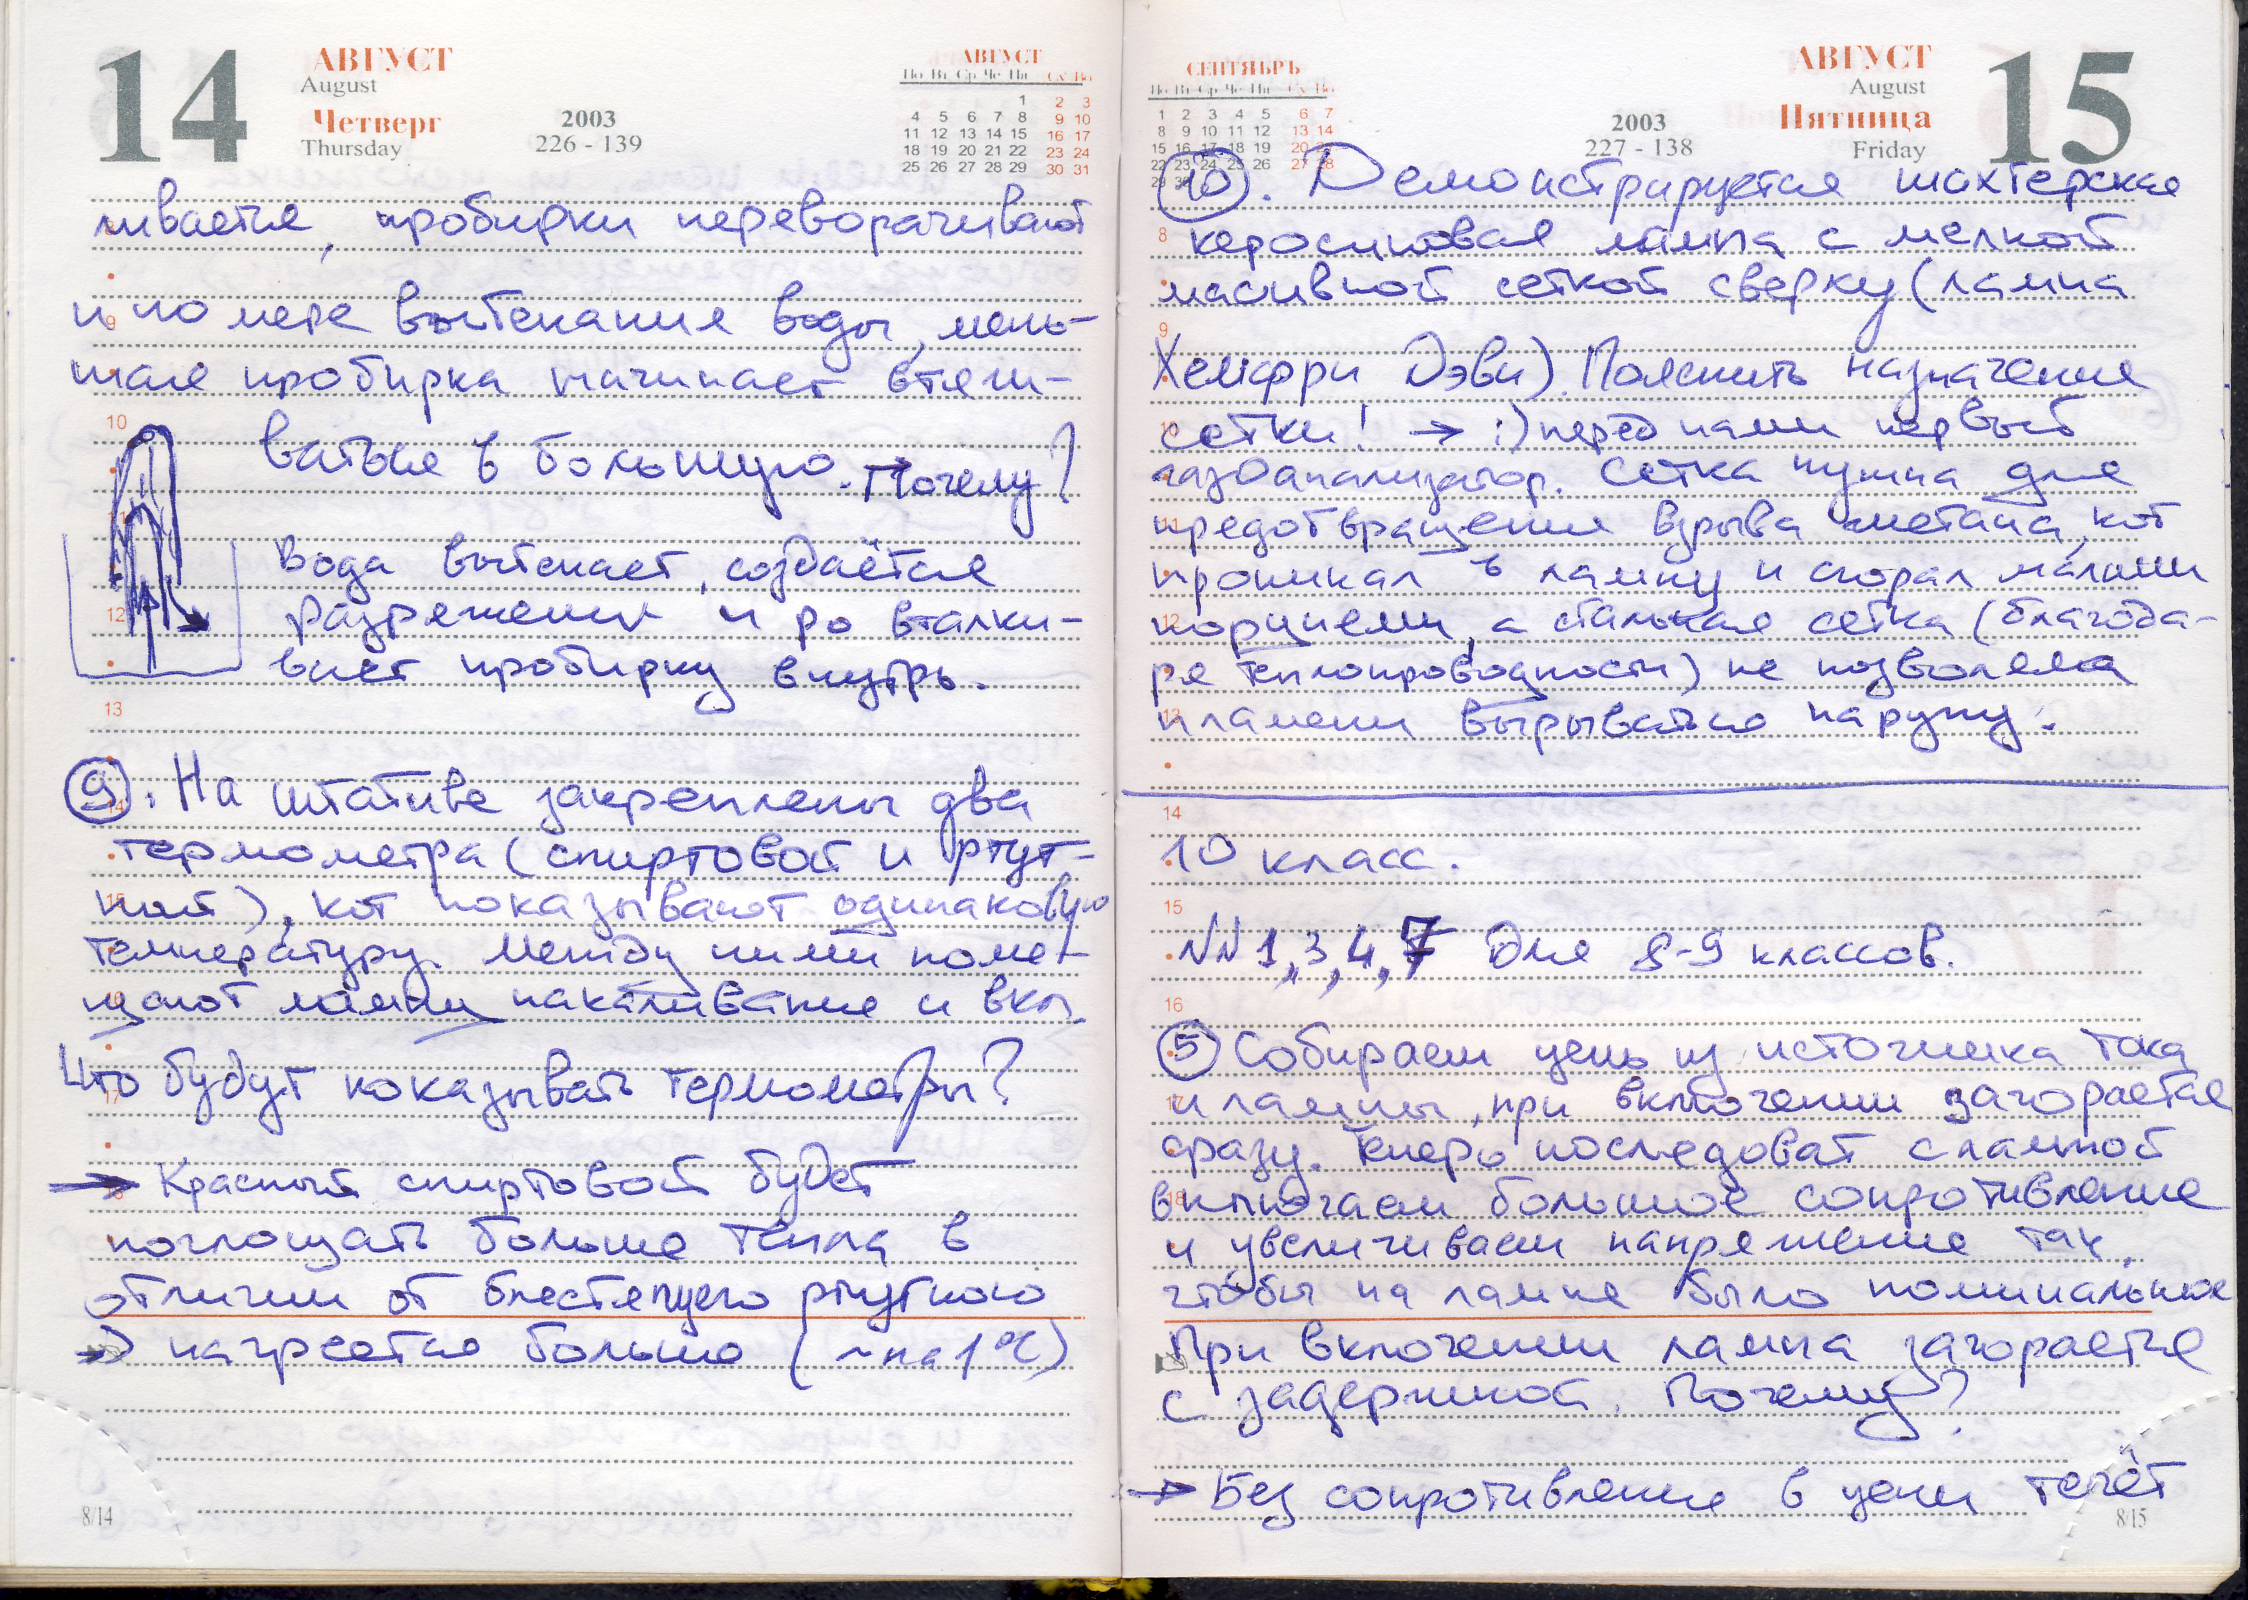 14
АВГУСТ
August
Четверг
Thursday
2003
226 - 139
АВГУСТ
По Вт Ср Че Пя Су Во
1 2 3
4 5 6 7 8 9 10
11 12 13 14 15 16 17
18 19 20 21 22 23 24
25 26 27 28 29 30 31
ливается, пробирки переворачивают
и по мере вытекания воды, мень-
шая пробирка начинает втяги-
ваться в большую. Почему?
Вода вытекает, создаётся
разрежение и p0 вталки-
вает пробирку внутрь.
9. На штативе закреплены два
термометра (спиртовой и ртут-
ный), кот показывают одинаковую
температуру. Между ними поме-
щают лампу накаливания и вкл.
Что будут показывать термометры?
→ Красный спиртовой будет
поглощать больше тепла в
отличии от блестящего ртутного
→ нагреется больше (~на 1°C)
8
9
10
11
12
13
14
15
17
8/14
СЕНТЯБРЬ
По Вт Ср Че Пя Су Во
1 2 3 4 5 6 7
8 9 10 11 12 13 14
15 16 17 18 19 20 21
22 23 24 25 26 27 28
29 30
2003
227 - 138
АВГУСТ
August
Пятница
Friday
15
10. Демонстрируется шахтерская
керосиновая лампа с мелкой
масивной сеткой сверху (лампа
Хемфри Дэви). Пояснить назначение
сетки! → :) перед нами первый
газоанализатор. Сетка нужна для
предотвращения взрыва метана, кот
проникал в лампу и сгорал малыми
порциями, а стальная сетка (благода-
ря теплопроводности) не позволяла
пламени вырываться наружу.
10 класс.
NN 1, 3, 4, 7 Для 8-9 классов.
5 Собираем цепь из источника тока
и лампы, при включении загорается
сразу. Теперь последоват с лампой
включаем большое сопротивление
и увеличиваем напряжение так,
чтобы на лампе было номинальное
При включении лампа загорается
с задержкой. Почему?
→ Без сопротивления в цепи течёт
8
9
10
11
12
13
14
15
16
17
18
8/15